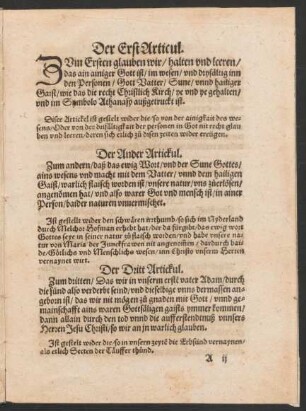 Der Erst Articul.
Vm Ersten glauben wir/ halten vnd leeren/
das ain ainiger Gott ist/ im wesen/ vnd dryfältig inn
den Personen/ Got Vatter/ Sune/ vnnd hailiger
Gaist/ wie das die recht Christlich Kirch/ ye vnd ye gehalten/
vnd im Symbolo Athanasy außgetruckt ist.
Diser Artickel ist gestelt wider die so von der ainigkait des we-
sens/ Oder von der dryfältigkait der personen in Got nit recht glau
ben vnd leeren/ deren sich etlich zů disen zeiten wider ereügen.
Der Ander Artickul.
Zum andern/ daß das ewig Wort/ vnd der Sune Gottes/
ains wesens vnd macht mit dem Vatter/ vnnd dem hailigen
Gaist/ warlich flaisch worden ist/ vnsere natur/ vns zůerlösen/
angenommen hat/ vnd also warer Got vnd mensch ist/ in ainer
Person/ baider naturen vnuermischet.
Ist gestelt wider den schwären irrthumb/ so sich im Nyderland
durch Melchor Hofman erhebt hat/ der da fürgibt/ das ewig wort
Gottes seye in seiner natur zů flaisch worden/ vnd hab vnsere na-
tur von Maria der Junckfrawen nit angenommen/ dardurch bai-
de/ Götlichs vnd Menschlichs wesen/ inn Christo vnserm Herren
vernaynet wirt.
Der Dritt Artickul.
Zum dritten/ Das wir in vnserm erste vater Adam/ durch
die sünd also verderbt seind/ vnd dieselbige vnns dermassen an-
geborn ist/ das wir nit mögen zů gnaden mit Got/ vnnd ge-
mainschafft ains waren Gottsäligen gaists ymmer kommen/
dann allain durch den tod vnnd die aufferstentnuß vnnsers
Herren Jesu Christi/ so wir an jn warlich glauben.
Ist gestelt wider die/ so in vnsern zeyte die Erbsünd vernaynen/
als etlich Secten der Täuffer thůnd.
A ij